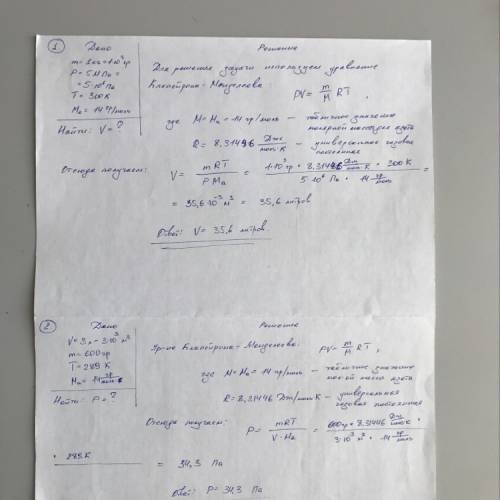 ① Дано
m = 1 кг = 1·10³ гр
P = 5 МПа =
= 5·10⁶ Па
T = 300 К
Mₐ = 14 гр/моль
Найти: V = ?
Решение
Для решения задачи используем уравнение
Клапейрона-Менделеева
PV = m/M RT,
где M = Mₐ = 14 гр/моль – табличное значение
молярной массы азота
R = 8,31446 Дж/моль·К – универсальная газовая
постоянная
Отсюда получаем: V = mRT / PMₐ = 1·10³ гр · 8,31446 Дж/моль·К · 300 К / 5·10⁶ Па · 14 гр/моль =
= 35,6·10⁻³ м³ = 35,6 литров
Ответ: V = 35,6 литров.
② Дано
m = 600 гр
T = 289 К
Найти: P = ?
Решение
Ур-ие Клапейрона-Менделеева: PV = m/M RT,
где M = Mₐ = 14 гр/моль – табличное значение
массы азота
R = 8,31446 Дж/моль К – универсальная
газовая постоянная
Отсюда получаем: P = mRT / V·Mₐ = 600 гр · 8,31446 Дж/моль·К · / 3·10³ м³ · 14 гр/моль
· 289 К = 34,3 Па
Ответ: P = 34,3 Па